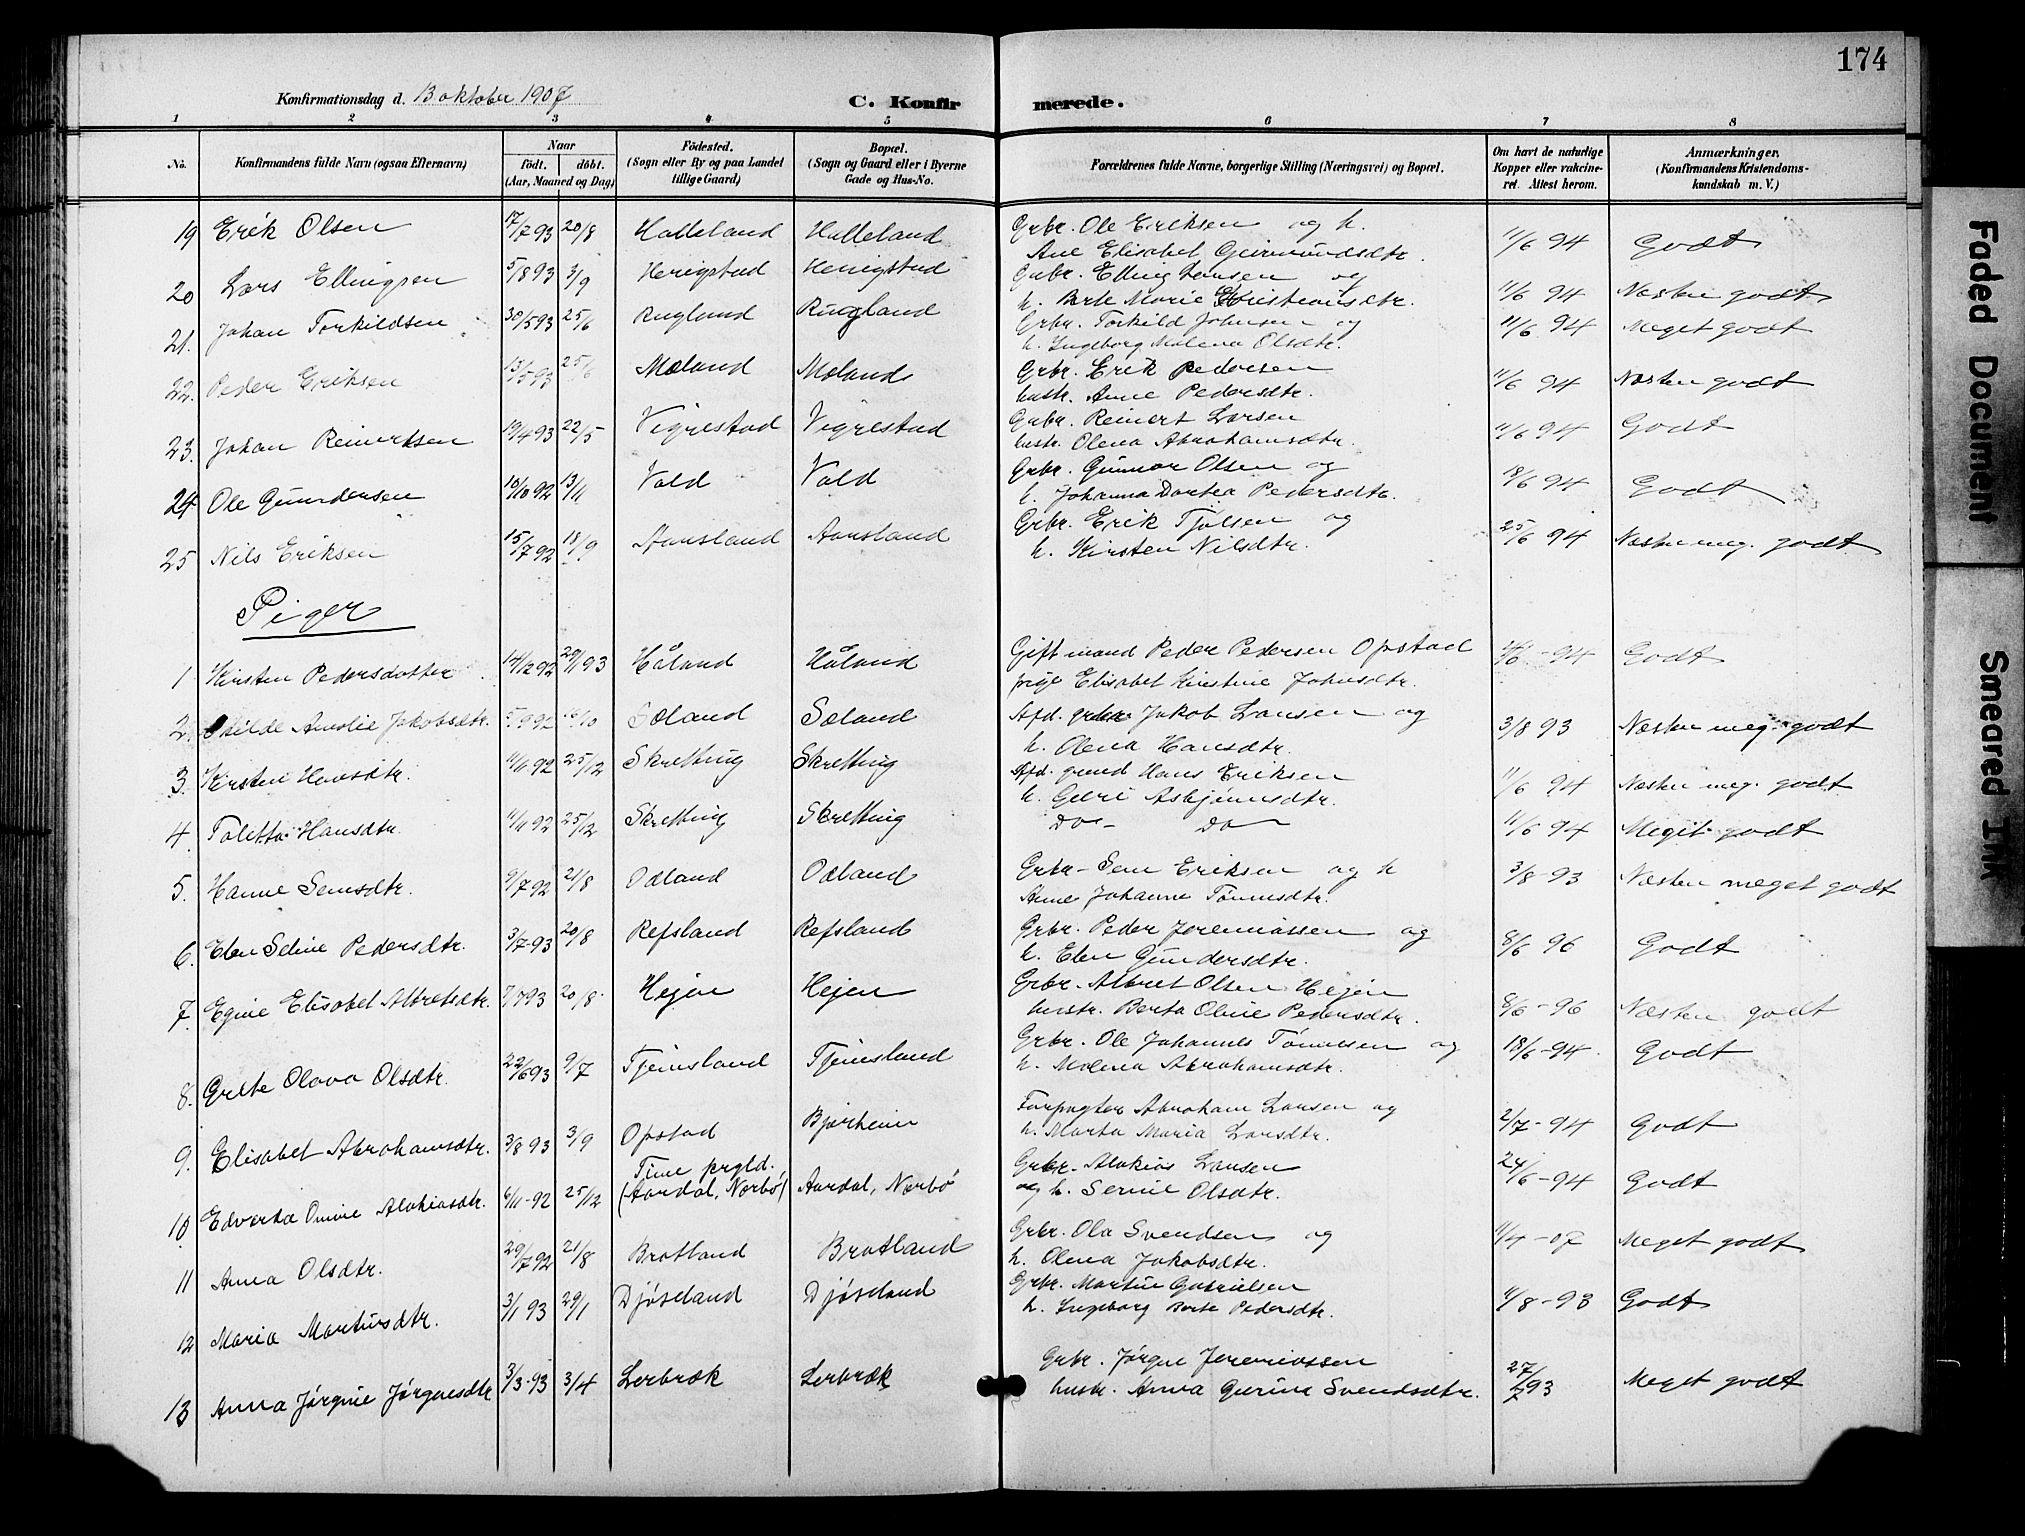 174
Konfirmationsdag d. 13 oktober 1907
C. Konfirmerede.
1 2 3 4 5 6 7 8
No. Konfirmandens fulde Navn (ogsaa Efternavn) Naar født. døbt. (Aar, Maaned og Dag) Fødested. (Sogn eller By og paa Landet tillige Gaard) Bopæl. (Sogn og Gaard eller i Byerne Gade og Hus-No. Forældrenes fulde Navne, borgerlige Stilling (Næringsvei) og Bopæl. Om havt de naturlige Kopper eller vakcineret. Attest herom. Anmærkninger. (Konfirmandens Kristendomskundskab m. V.)
19 Erik Olsen 17/7 93 20/8 Halleland Halleland Grbr. Ole Eriksen og h. 11/6 94 Godt
Ane Elisabet Geirmundsdtr.
20 Lars Ellingsen 5/8 93 3/9 Herigstad Herigstad Grbr. Elling Larsen og 11/6 94 Næsten godt
h. Berte Marie Kristiansdtr.
21. Johan Torkildsen 30/5 93 25/6 Rugland Rugland Grbr. Torkild Johnsen og 11/6 94 Meget godt
h. Ingeborg Malena Olsdtr.
22. Peder Eriksen 13/5 93 25/6 Mæland Mæland Grbr. Erik Pedersen 11/6 94 Næsten godt
hustr. Anne Pedersdtr.
23. Johan Reinertsen 19/4 93 22/5 Vigrestad Vigrestad Grbr. Reinert Larsen 11/6 94 Godt
hustr. Olena Abrahamsdtr.
24 Ole Gunnarsen 16/10 92 13/11 Vold Vold Grbr. Gunnar Olsen og 18/6 94 Godt
h. Johanna Dortea Pedersdtr.
25 Nils Eriksen 15/7 92 18/9 Aansland Aansland Grbr. Erik Tjølsen og 25/6 94 Næsten meg. godt
h. Kirsten Nilsdtr.
Piger
1 Kirsten Pedersdotter 14/12 92 29/1 93 Håland Håland Gift mand Peder Pedersen Opstad 94 Godt
pige Elisabet Kirstine Johnsdtr.
2. Amalie Jakobsdtr. 5/9 92 16/10 Sæland Sæland Afd. grbr. Jakob Larsen og 3/8 93 Næsten meg. godt
h. Olena Hansdtr.
3. Kirsten Hansdtr. 11/11 92 25/12 Skretting Skretting Afd. grmd Hans Eriksen 11/6 94 Næsten meg. godt
h. Guri Asbjørnsdtr.
4. Taletta Hansdtr. 11/11 92 25/12 Skretting Skretting Do - Do 11/6 94 Meget godt
5. Hanne Semsdtr. 9/7 92 21/8 Ødland Ødland Grbr- Sem Eriksen og h 3/8-93 Næsten meget godt
Anne Johanne Tønnesdtr.
6. Elen Seline Pedersdtr. 3/7-93 20/8 Refsland Refsland Grbr. Peder Jeremiassen og 8/6 96 Godt
h. Elen Gundersdtr.
7. Egine Elisabet Albretsdtr. 7/7 93 20/8 Hejen Hejen Grbr. Albret Olsen Hejen 8/6-96 Næsten godt
hustr. Berta Oline Pedersdtr.
8. Grete Olava Olsdtr. 22/6 93 9/7 Tjemsland Tjemsland Grbr. Ole Johannes Tønnesen og 18/6-94. Godt
h. Malena Abrahamsdtr.
9. Elisabet Abrahamsdtr. 3/8 93 3/9 Opstad Bjorheim Forpagter Abraham Larsen og 2/7-94 Godt
h. Marta Maria Larsdtr.
10 Edvarda Omine Alakiasdtr. 6/11-92 25/12 Time prgld. (Aardal, Nærbø) Aardal, Nærbø Grbr. Alakias Larsen 24/6-94 Godt
og h. Serine Olsdtr.
11 Anna Olsdtr. 29/7 92 21/8 Bratland Bratland Grbr. Ola Svendsen og 11/4-07 Meget godt
h. Olena Jakobsdtr.
12 Maria Martinsdtr. 3/1 93 29/1 Djøseland Djøseland Grbr. Martin Gabrielsen 11/8-93 Godt
h. Ingeborg Berte Pedersdtr.
13 Anna Jørgine Jørgensdtr 3/3-93 3/4 Lerbræk Lerbræk Grbr. Jørgen Jeremiassen 27/7 93 Meget godt
hustr. Anna Gurina Svendsdtr.
Faded Document
Smeared Ink